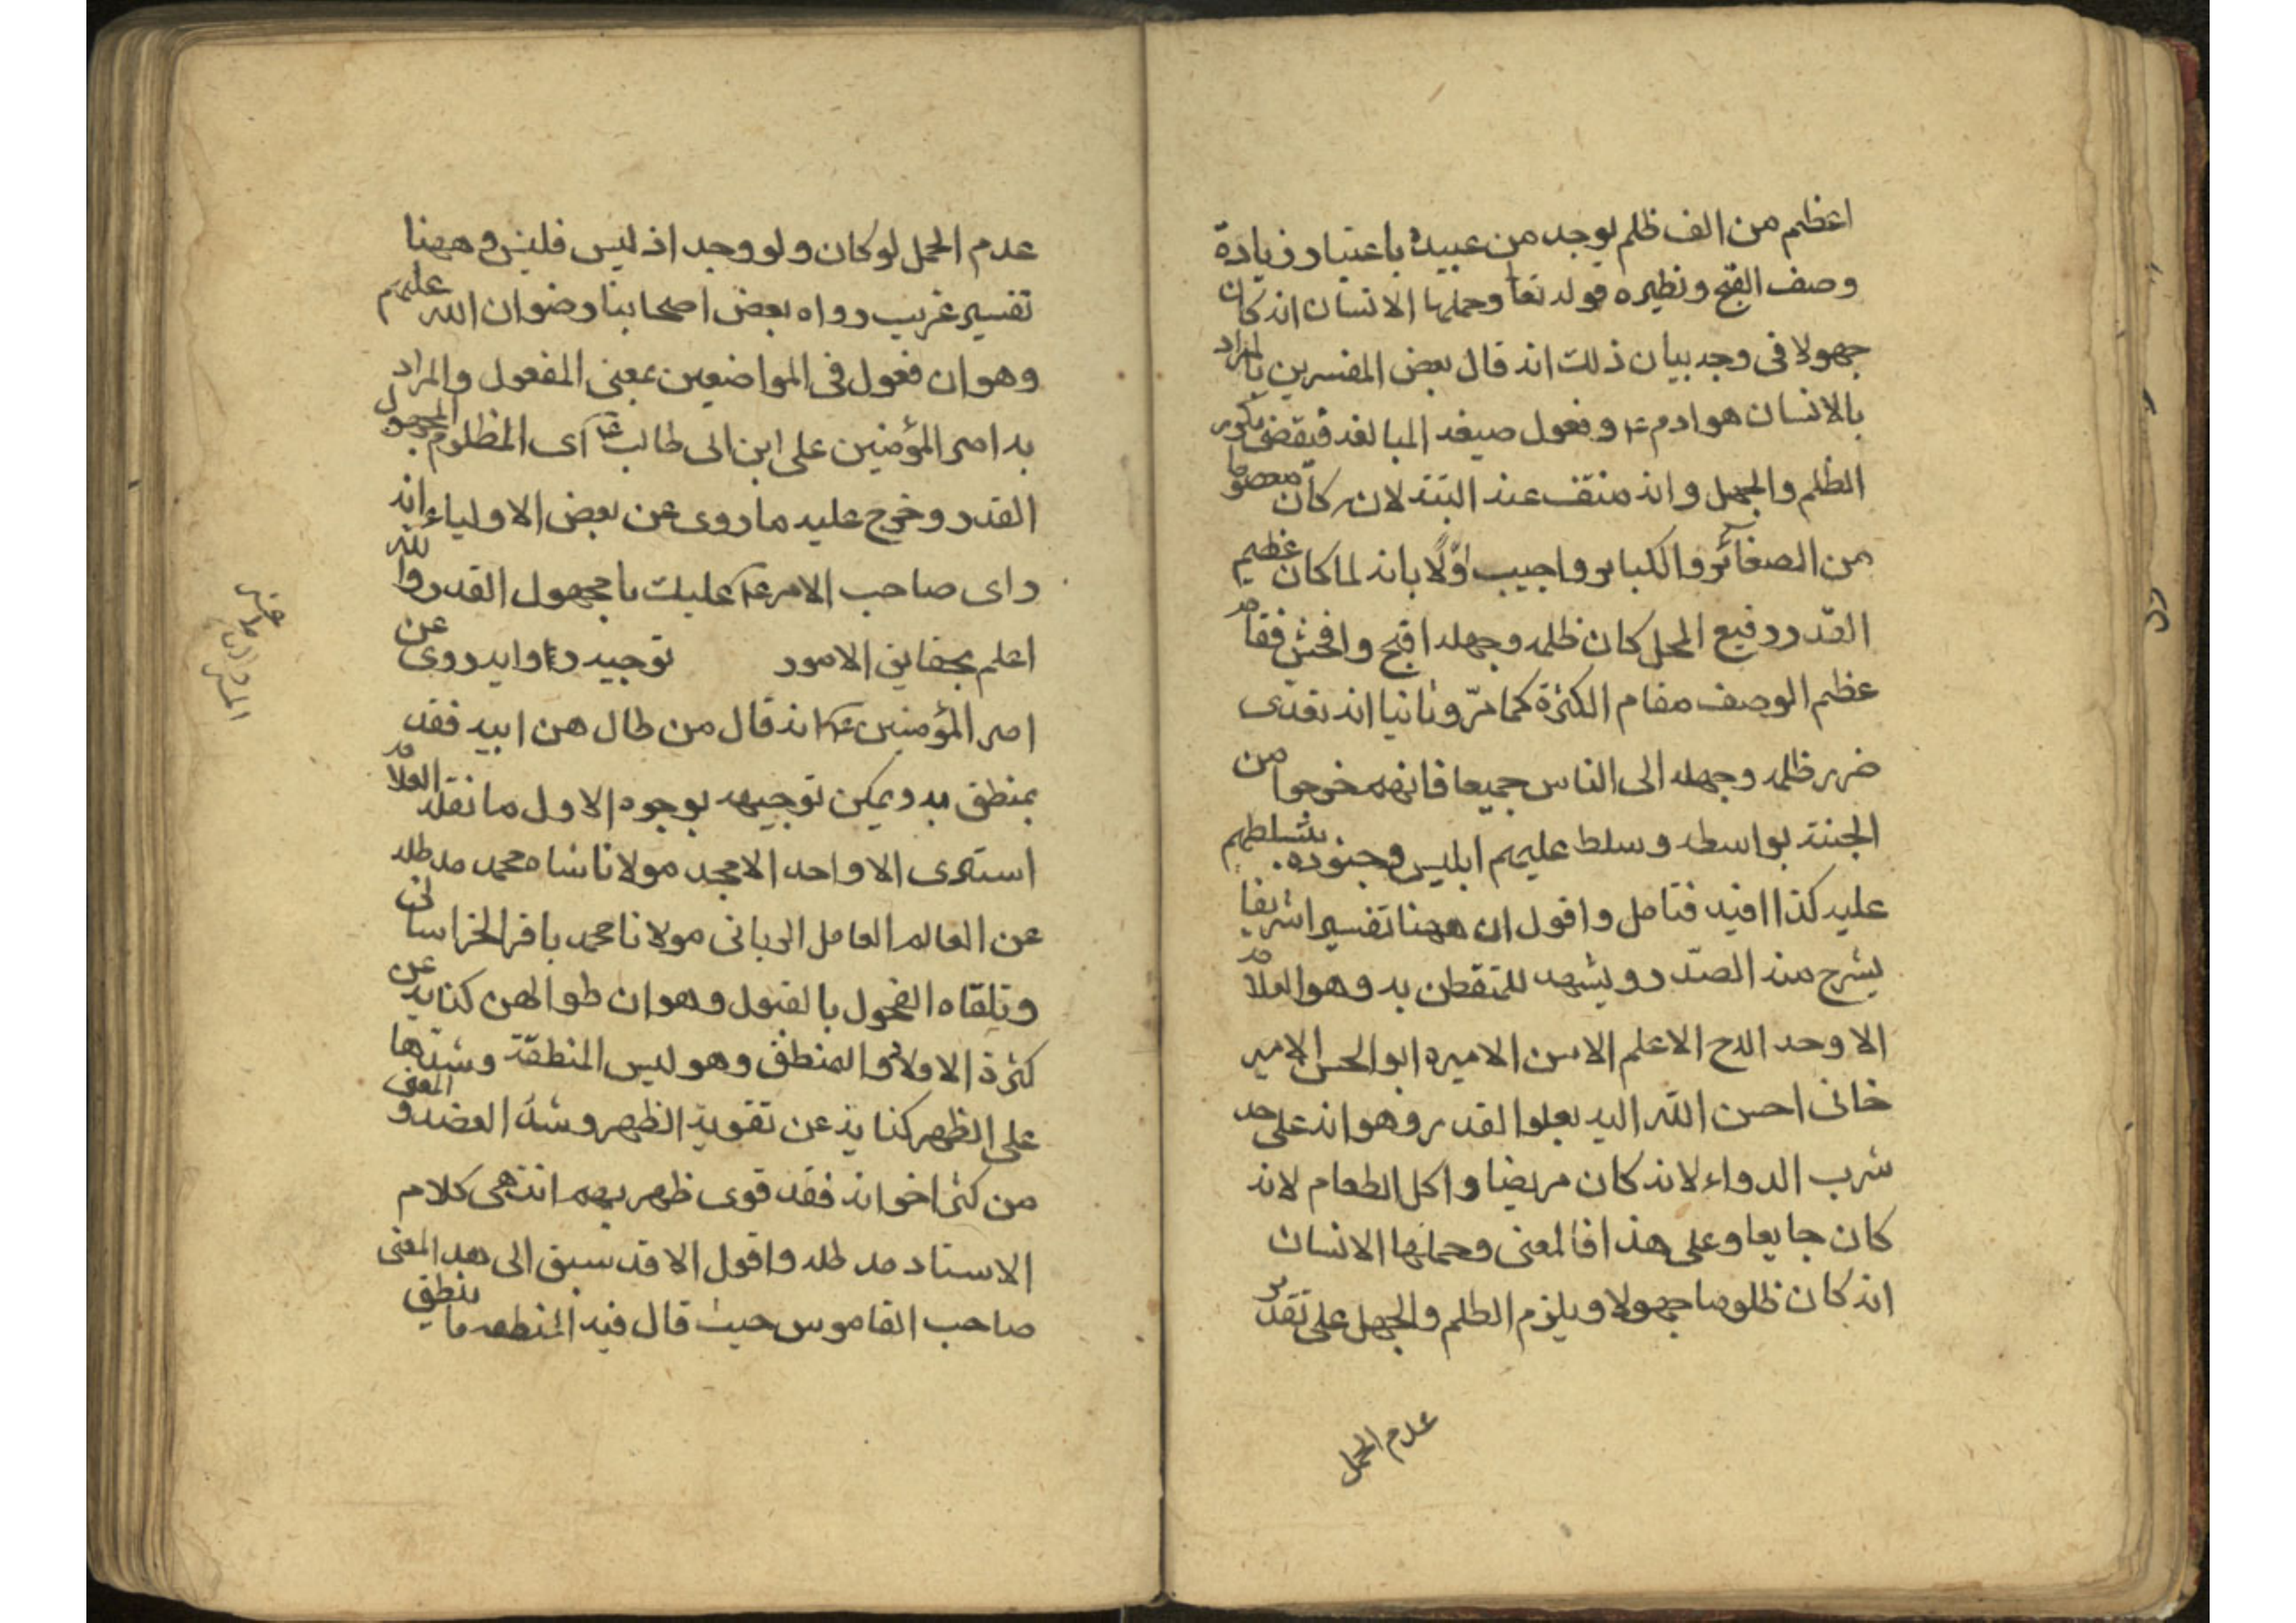 اعظم من الف ظلم يوجد من عبيده باعتبار زيادة
وصف القبح ونظيره قوله تعا وحملها الانسان انه كان
جهولا فى وجه بيان ذلك انه قال بعض المفسرين بالمراد
بالانسان هو ادم ع و فعول صيغه المبالغه فيقضى بكون
الظلم والجهل وانه منتف عنه البته لانه كان معصوما
من الصغائر والكباير واجيب اوّلا بانه لما كان عظيم
القدر رفيع المحل كان ظلمه وجهله اقبح وافحش فقام
عظم الوصف مقام الكثرة كما مرّ وثانيا انه تعدى
ضرر ظلمه وجهله الى الناس جميعا فانهم خرجوا من
الجنة بواسطه وسلط عليهم ابليس وجنوده بتسلطهم
عليه كذا افيد فتامل واقول ان ههنا تفسيرا شريفا
يشرح منه الصدر ويشهد للتفطن به وهو العلامه
الاوحد الاعلم الاميره ابو الحسن الامير
خانى احسن الله اليه بعلو القدر وهو انه على حد
شرب الدواء لانه كان مريضا واكل الطعام لانه
كان جايعا وعلى هذا فالمعنى وحملها الانسان
انه كان ظلوما جهولا ويلزم الظلم والجهل على تقدير
عدم الحمل
عدم الحمل لو كان ولو وجد اذ ليس فليس وههنا
تفسير غريب رواه بعض اصحابنا رضوان الله عليهم
وهو ان فعول فى المواضعين بمعنى المفعول والمراد
به امير المؤمنين على ابن ابى طالب ع اى المظلوم المجهول
القدر وخرج عليه ما روى عن بعض الاولياء انه
راى صاحب الامر ع عليك يا مجهول القدر والله
اعلم بحقايق الامور توجيه روايه روى عن
امير المؤمنين ع انه قال من طال هن ابيه فقد
يمنطق به ويمكن توجيهه بوجوه الاول ما نقله العلامه
استادى الاواحد الامجد مولانا شاه محمد مد ظله
عن العالم العامل الربانى مولانا محمد باقر الخراسانى
وتلقاه الفحول بالقبول وهو ان طوالهن كنايه عن
كثرة الاولاد والمنطق وهو لبس المنطقة وشدّها
على الظهر كنايه عن تقوية الظهر وشد العضد والمعنى
من كثر اخوانه فقد قوى ظهر بهم انتهى كلام
الاستاد مد ظله واقول الا قد سبق الى هذه المعنى
صاحب القاموس حيث قال فيه المنطقه ما ينطق